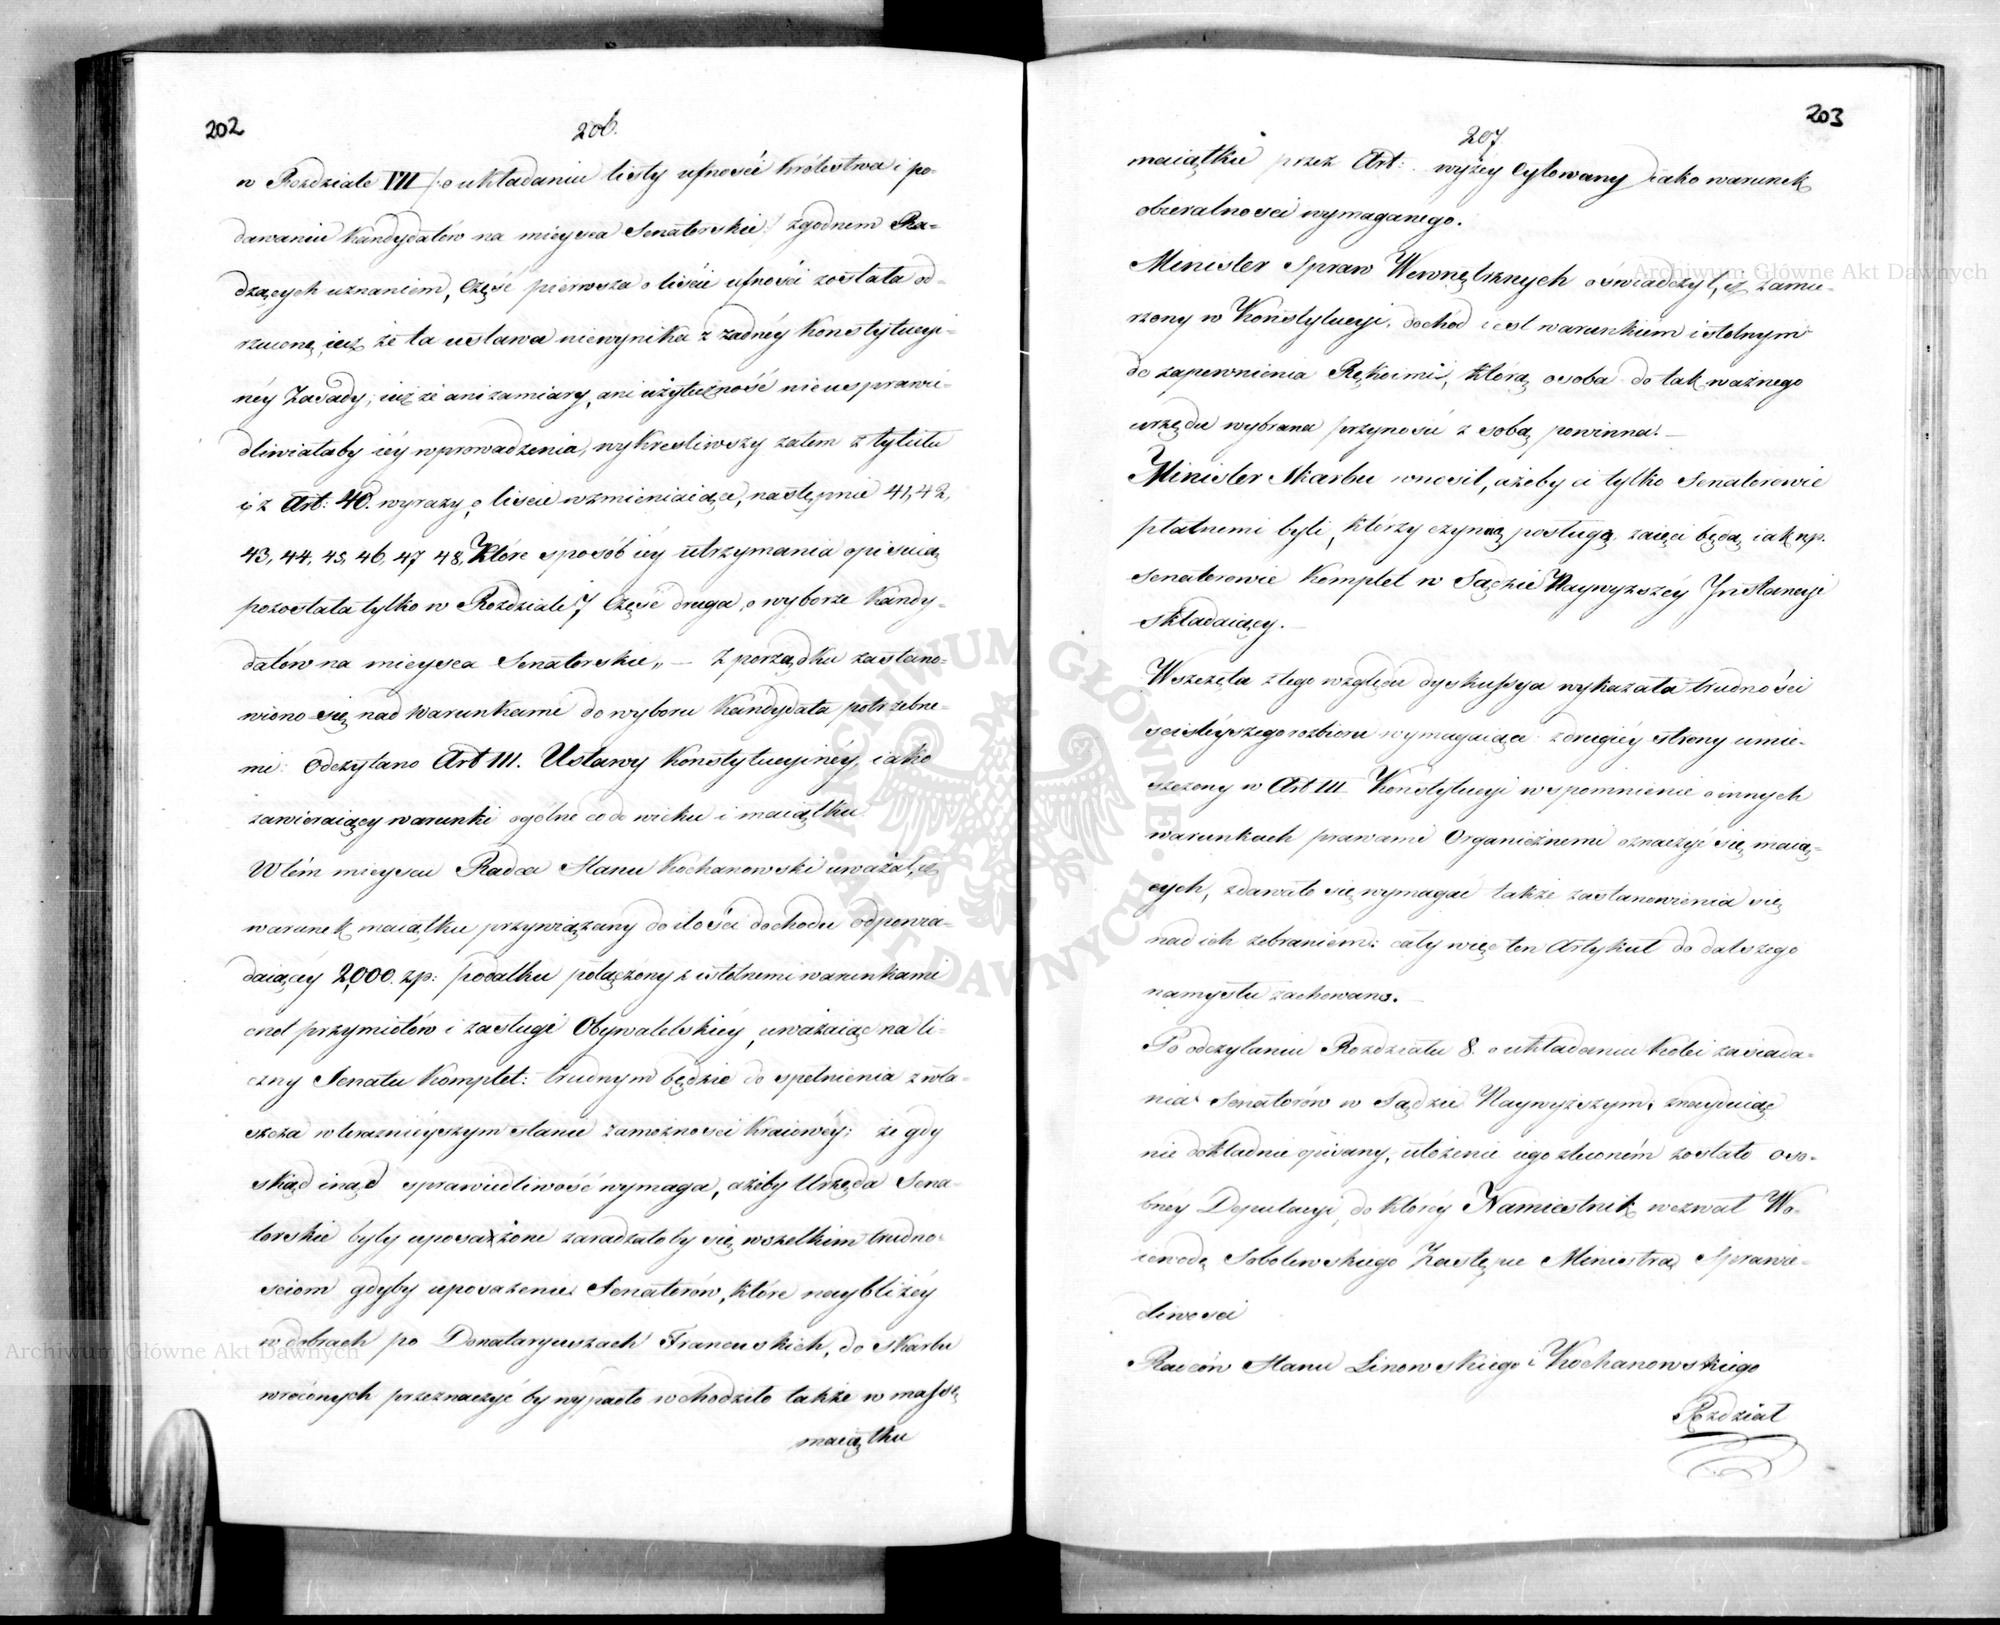 202
206.
w Rozdziale VII /: o układaniu listy ufności Królestwa i po-
dawaniu Kandydatów na mieysca Senatorskie :/ zgodnem Ra-
dzących uznaniem, Część pierwsza o liście ufności została od-
rzuconą, iuż że ta ustawa niewynika z żadnéy Konstytucyi-
néy Zasady, iuż że ani zamiary, ani użyteczność nieusprawie-
dliwiałaby iéy wprowadzenia, wykreśliwszy zatem z tytułu
i z Art: 40. wyrazy o liście wzmieniaiące, następnie 41, 42,
43, 44, 45, 46, 47 48, Które sposób iéy utrzymania opisuią
pozostała tylko w Rozdziale 7 Część druga, o wyborze Kandy-
datów na mieysca Senatorskie„ — Z porządku zastano-
wiono się nad warunkami do wyboru Kandydata potrzebne-
mi: Odczytano Art III. Ustawy Konstytucyinéy, iako
zawieraiący warunki ogólne co do wieku i maiątku.
W tém mieyscu Radca Stanu Kochanowski uważał, iż
warunek maiątku przywiązany do ilości dochodu odpowia-
daiącéy 2,000. zp: podatku połączony z istotnemi warunkami
cnot przymiotów i zasługi Obywatelskiéy, uważaiąc na li-
czny Senatu Komplet: trudnym będzie do spełnienia zwła-
szcza w teraznieyszym stanie zamożności Kraiowéy; że gdy
skąd inąd sprawiedliwość wymaga, ażeby Urzęda Sena-
torskie były uposażone zaradzałoby się wszelkim trudno-
ściom gdyby uposażenie Senatorów, które naybliżéy
w dobrach po Donataryuszach Francuskich, do Skarbu
wróconych przeznaczyć by wypadło wchodziło także w massę
maiątku
203
207
maiątku przez Art: wyżey cytowany iako warunek
obieralności wymaganego.
Minister Spraw Wewnętrznych oświadczył, iż zamie-
rzony w Konstytucyi, dochód iest warunkiem istotnym
do zapewnienia Rękoimi, którą osoba do tak ważnego
urzędu wybrana przynosić z sobą powinna. —
Minister Skarbu wnosił, ażeby ci tylko Senatorowie
płatnemi byli, którzy czynną posługą zaięci będą iak np.
Senatorowie Komplet w Sądzie Naywyższéy Instancyi
składaiący. —
Wszczęta z tego względu dyskussya wykazała trudności
ściśléyszego rozbioru wymagaiące: z drugiéy strony umie-
szczony w Art III Konstytucyi wspomnienie o innych
warunkach prawami Organicznemi oznaczyć się maią-
cych, zdawało się wymagać także zastanowienia się
nad ich zebraniem: cały więc ten Artykuł do dalszego
namysłu zachowano. —
Po odczytaniu Rozdziału 8. o układaniu Kolei zasiada-
nia Senatorów w Sądzie Naywyższym, znayduiąc
nie dokładnie opisany, ułożenie iego zleconém zostało oso-
bney Deputacyi, do któréy Namiestnik wezwał Wo-
iewodę Sobolewskiego Zastępcę Ministra Sprawie-
dliwości
Radców Stanu Linowskiego i Kochanowskiego
Rozdział
Archiwum Główne Akt Dawnych
Archiwum Główne Akt Dawnych
ARCHIWUM GŁÓWNE AKT DAWNYCH